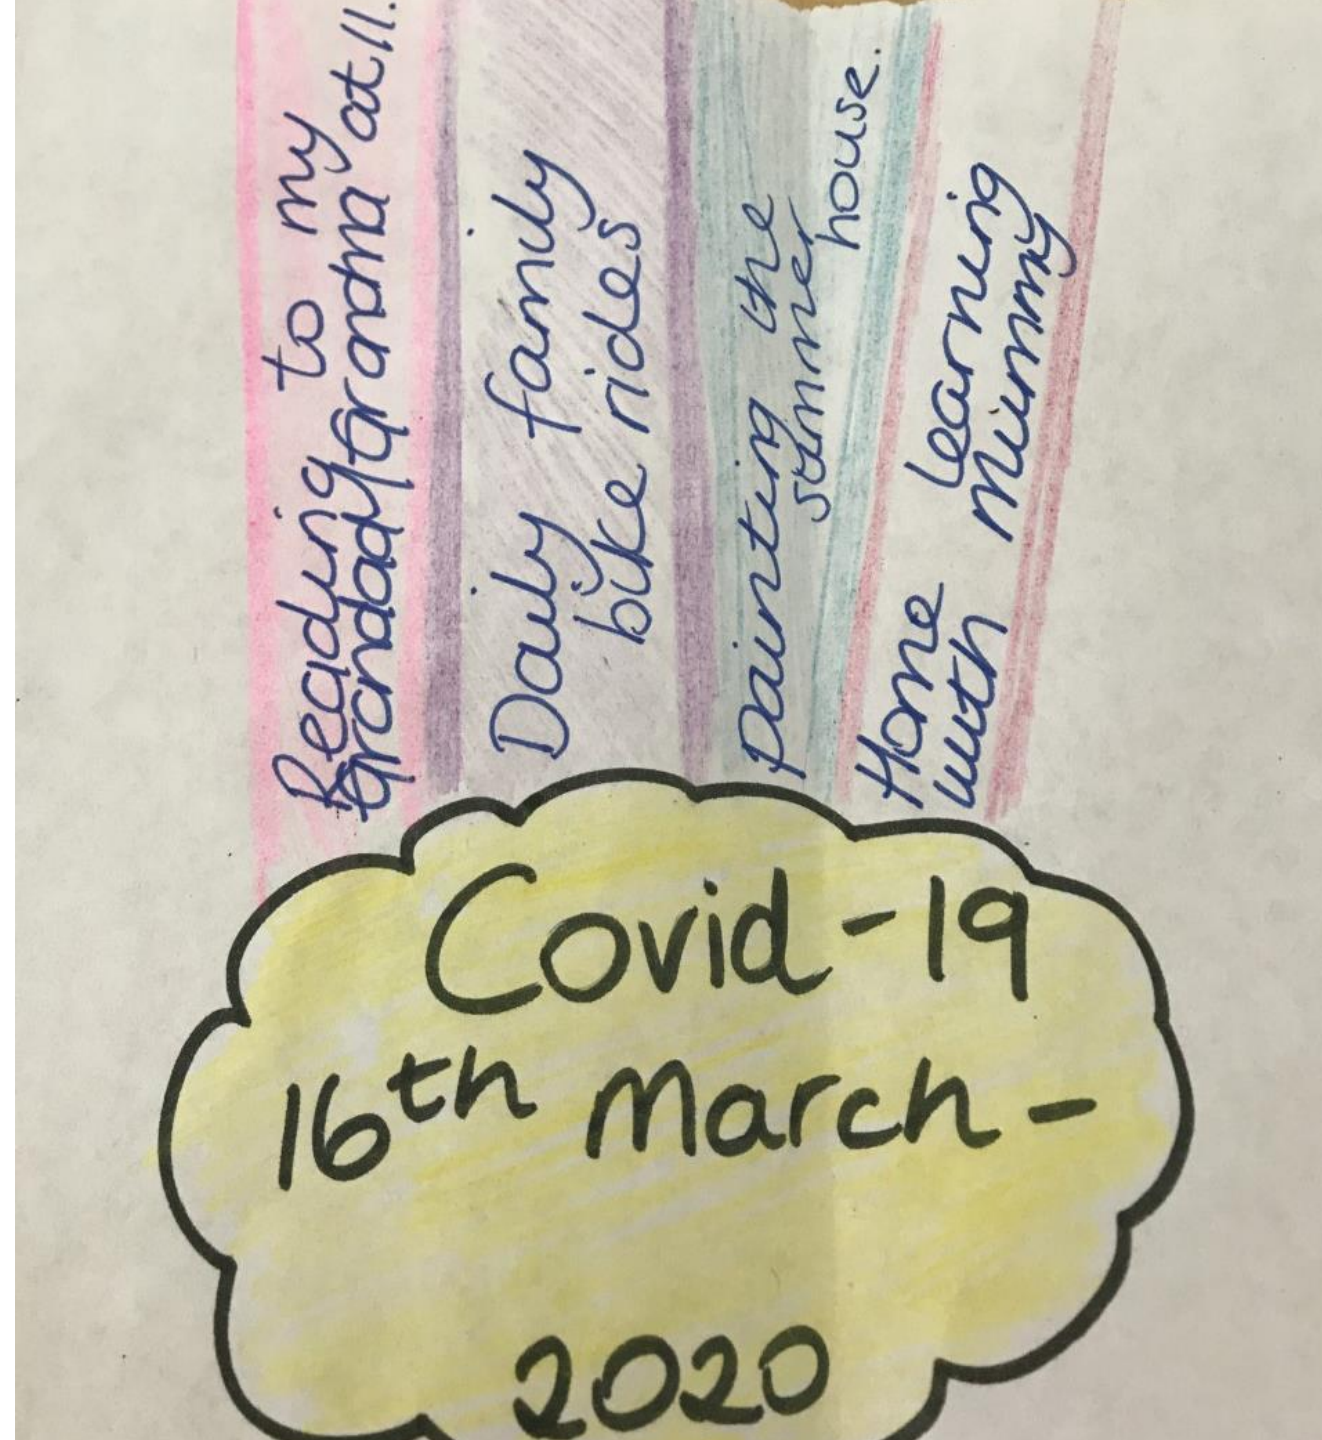 Reading to my
Grandad/Grandma at 11.
Daily family
bike rides
painting the
summer
house.
Home learning
with mummy
Covid-19
16th March-
2020